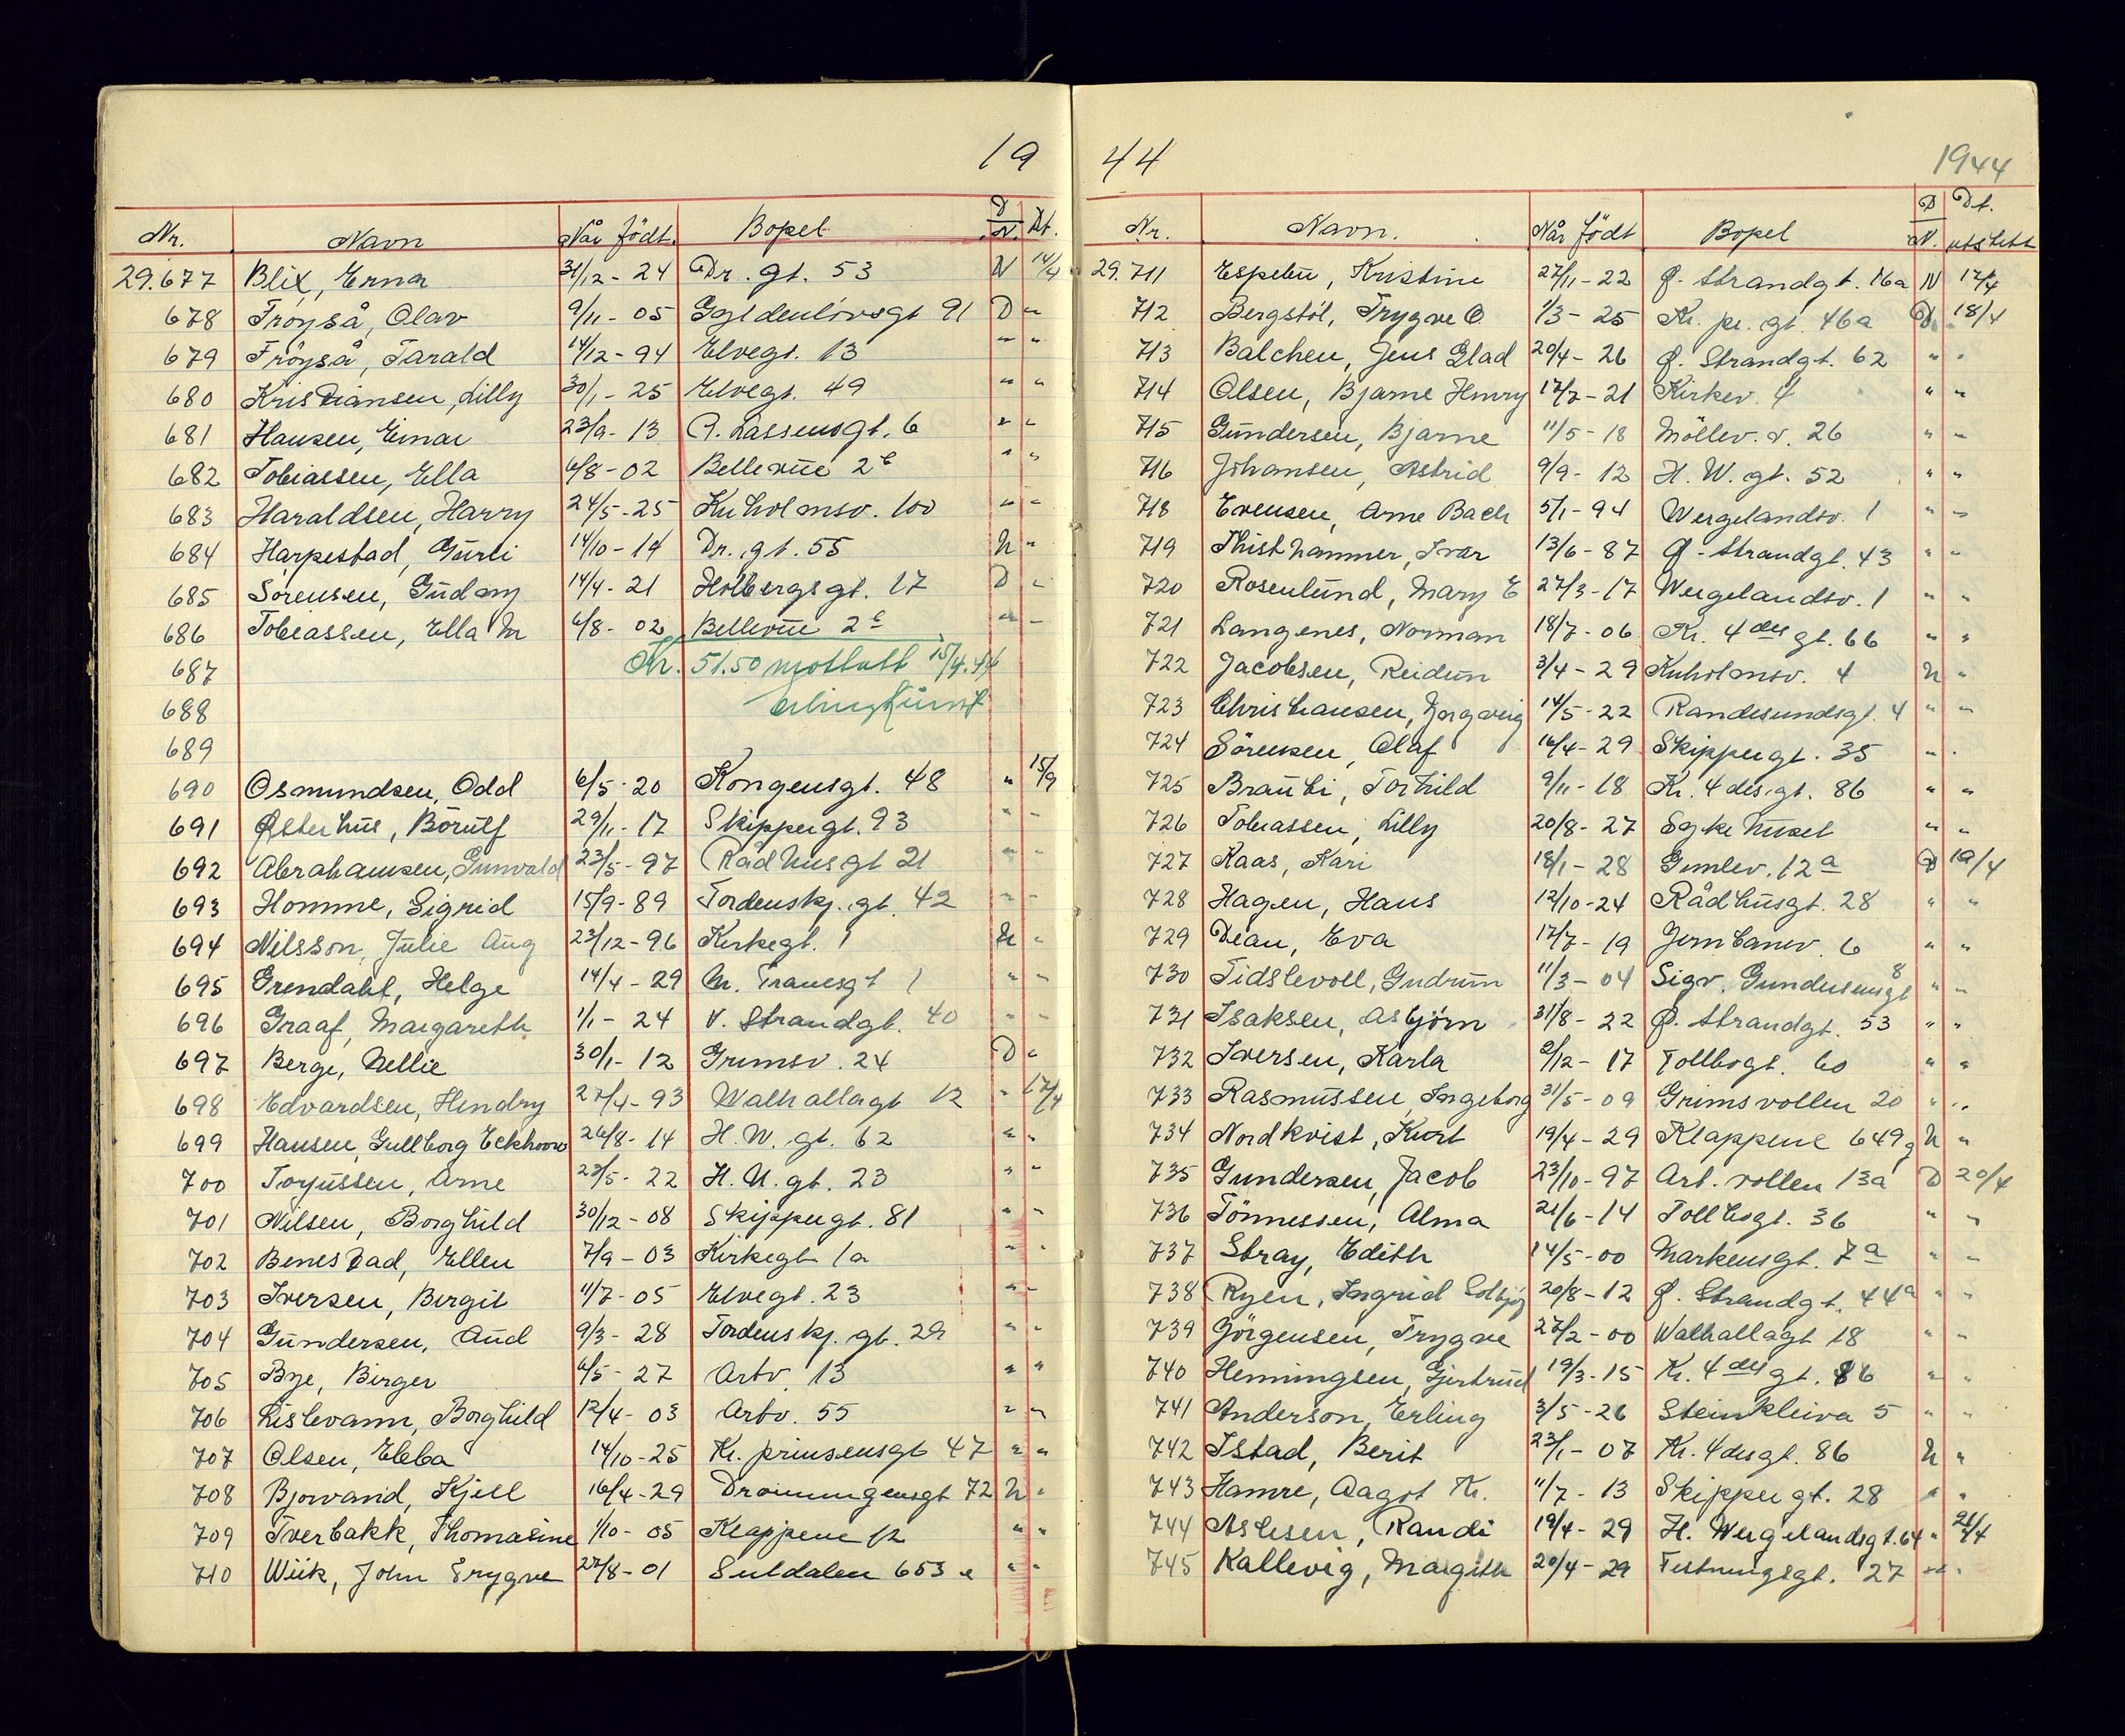 19
Nr. Navn Når född. Bopel D/N. Dt.
29.677 Blix, Erna 31/12 - 24 Dr. gt. 53 N 14/4
678 Fröyså, Olav 9/11 - 05 Gyldenlövsgt 91 D "
679 Fröyså, Tarald 14/12 - 94 Elvegt. 13 " "
680 Kristiansen, Lilly 30/1 - 25 Elvegt. 49 " "
681 Hansen, Einar 23/9 - 13 A. Lassensgt. 6 " "
682 Tobiassen, Ella 6/8 - 02 Bellevue 2c " "
683 Haraldsen, Harry 24/5 - 25 Kuholmsv. 100 " "
684 Harpestad, Guri 14/10 - 14 Dr. gt. 55 N "
685 Sörensen, Gudny 14/4 - 21 Holbergsgt. 17 D "
686 Tobiassen, Ella M 6/8 - 02 Bellevue 2c " "
687 Kr. 51.50 mottatt 15/4.44
688
689
690 Osmundsen, Odd 6/5 - 20 Kongensgt. 48 " 15/9
691 Østerhus, Börulf 29/11 - 17 Skippergt. 93 " "
692 Abrahamsen, Gunvald 23/5 - 97 Rådhusgt 21 " "
693 Homme, Sigrid 15/9 - 89 Tordenskj. gt. 42 " "
694 Nilsson, Julie Aug 23/12 - 96 Kirkegt. 1 N "
695 Grendahl, Helge 14/4 - 29 M. Tranesgt 1 " "
696 Graaf, Margareth 1/1 - 24 V. Strandgt. 40 " "
697 Berge, Nellie 30/1 - 12 Grimsv. 24 D "
698 Edvardsen, Hendry 27/4 - 93 Walhallagt 12 " 17/4
699 Hansen, Gullborg Eckhoow 26/8 - 14 H. W. gt. 62 " "
700 Torjussen, Arne 23/5 - 22 H. U. gt. 23 " "
701 Nilsen, Borghild 30/12 - 08 Skippergt. 81 " "
702 Benestad, Ellen 7/9 - 03 Kirkegt 1a " "
703 Iversen, Birgit 11/7 - 05 Elvegt. 23 " "
704 Gundersen, Aud 9/3 - 28 Tordenskj. gt. 29 " "
705 Bye, Birger 6/5 - 27 Arbv. 13 " "
706 Lislevann, Borghild 12/4 - 03 Arbv. 55 " "
707 Olsen, Ebba 14/10 - 25 Kr. prinsensgt 47 " "
708 Bjorvand, Kjell 16/4 - 29 Dronningensgt 72 N "
709 Tverbakk, Thomasine 1/10 - 05 Klappene 12 " "
710 Wiik, John Trygve 27/8 - 01 Suldalen 653 e " "
44 1944
Nr. Navn. Når född Bopel D/N. Dt. utstett
29.711 Espeln, Kristine 27/11 - 22 Ø. Strandgt. 16a N 17/4
712 Bergstöl, Trygve O 1/3 - 25 Kr. pr. gt. 46a D 18/4
713 Balchen, Jens Glad 20/4 - 26 Ø. Strandgt. 62 " "
714 Olsen, Bjarne Henry 17/7 - 21 Kirkev. 4 " "
715 Gundersen, Bjarne 11/5 - 18 Möllev. v. 26 " "
716 Johansen, Astrid 9/9 - 12 H. W. gt. 52 " "
718 Evensen, Arne Bach 5/1 - 94 Wergelandsv. 1 " "
719 Thisthammer, Ivar 13/6 - 87 Ø. Strandgt. 43 " "
720 Rosenlund, Mary E 27/3 - 17 Wergelandsv. 1 " "
721 Langenes, Norman 18/7 - 06 Kr. 4des gt. 66 " "
722 Jacobsen, Reidun 3/4 - 29 Kuholmsv. 4 N "
723 Christiansen, Jorgveig 14/5 - 22 Randesundsgt. 4 " "
724 Sörensen, Olaf 16/4 - 29 Skippergt. 35 " "
725 Brauti, Torhild 9/11 - 18 Kr. 4des gt. 86 " "
726 Tobiassen, Lilly 20/8 - 27 Sykehuset " "
727 Kaas, Kari 18/1 - 28 Gimlev. 12a D 19/4
728 Hagen, Hans 12/10 - 24 Rådhusgt. 28 " "
729 Dean, Eva 17/7 - 19 Jernbanev. 6 " "
730 Tidslevoll, Gudrun 11/3 - 04 Sigv. Gundersensgt 8 " "
731 Isaksen, Asbjörn 31/8 - 22 Ø. Strandgt. 53 " "
732 Iversen, Karla 2/12 - 17 Tollbogt. 60 " "
733 Rasmussen, Ingeborg 31/5 - 09 Grimsvollen 20 " "
734 Nordkvist, Kurt 19/4 - 29 Klappene 649g N "
735 Gundersen, Jacob 23/10 - 97 Art. vollen 13a D 20/4
736 Tönnessen, Alma 21/6 - 14 Tollbogt. 36 " "
737 Stray, Edith 14/5 - 00 Markensgt. 7a " "
738 Ryen, Ingrid Solbjög 20/8 - 12 Ø. Strandgt. 44a " "
739 Jörgensen, Trygve 27/2 - 00 Walhallagt 18 " "
740 Henningsen, Gjertrud 19/3 - 15 Kr. 4des gt. 86 " "
741 Anderson, Erling 3/5 - 26 Steinkleiva 5 " "
742 Istad, Berit 23/1 - 07 Kr. 4desgt. 86 N "
743 Hamre, Aagot Kr. 11/7 - 13 Skippergt. 28 " "
744 Aslesen, Randi 19/4 - 29 H. Wergelandsgt. 64 " 21/4
745 Kallevig, Margith 20/4 - 29 Festningsgt. 27 " "